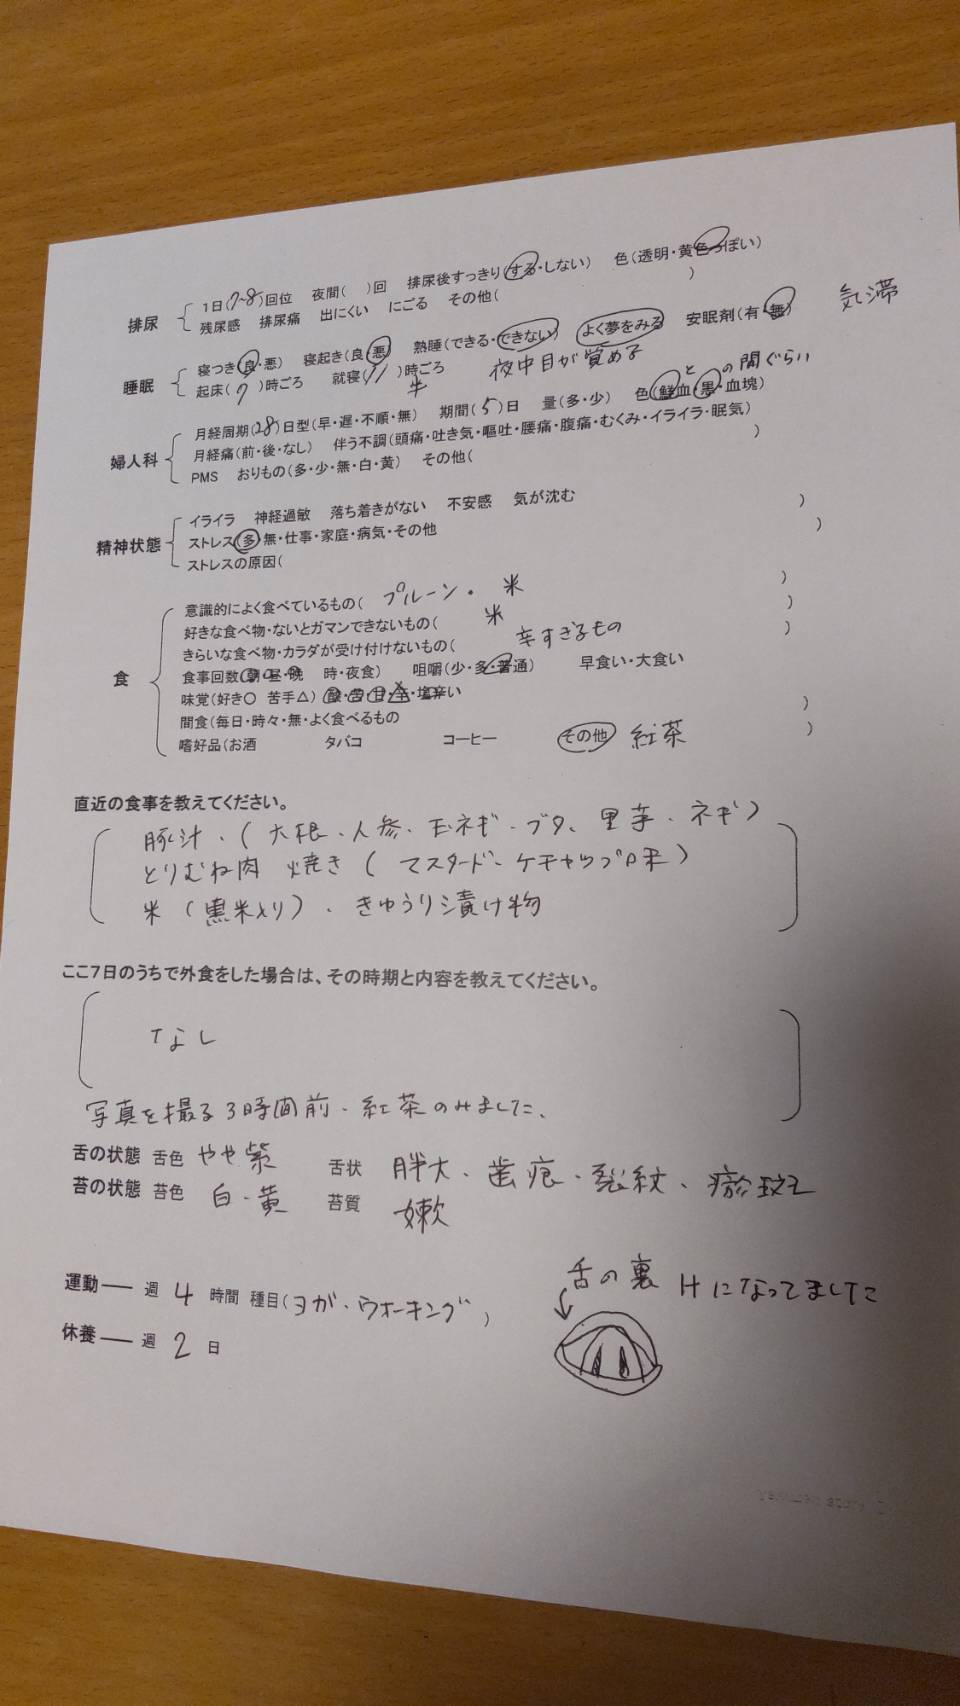 気滞
排尿 1日(7~8)回位 夜間( )回 排尿後すっきり(する・しない) 色(透明・黄色っぽい)
残尿感 排尿痛 出にくい にごる その他( )
睡眠 寝つき(良・悪) 寝起き(良・悪) 熟睡(できる・できない) よく夢をみる 安眠剤(有・無)
起床(7)時ごろ 就寝(11)時ごろ 夜中目が覚める
半
と の間ぐらい
婦人科 月経周期(28)日型(早・遅・不順・無) 期間(5)日 量(多・少) 色(鮮血・黒・血塊)
月経痛(前・後・なし) 伴う不調(頭痛・吐き気・嘔吐・腰痛・腹痛・むくみ・イライラ・眠気)
PMS おりもの(多・少・無・白・黄) その他( )
精神状態 イライラ 神経過敏 落ち着きがない 不安感 気が沈む )
ストレス(多・無・仕事・家庭・病気・その他 )
ストレスの原因(
食 意識的によく食べているもの( プルーン・米 )
好きな食べ物・ないとガマンできないもの( 米 )
きらいな食べ物・カラダが受け付けないもの( 辛すぎるもの )
食事回数(朝・昼・晩 時・夜食) 咀嚼(少・多・普通) 早食い・大食い
味覚(好き○ 苦手△) (酸・苦・甘・辛・塩辛い
間食(毎日・時々・無・よく食べるもの )
嗜好品(お酒 タバコ コーヒー その他 紅茶 )
直近の食事を教えてください。
豚汁・(大根・人参・玉ネギ・ブタ、里芋・ネギ)
とりむね肉 焼き(マスタード・ケチャップ味)
米(黒米入り)・きゅうり漬け物
ここ7日のうちで外食をした場合は、その時期と内容を教えてください。
なし
写真を撮る3時間前・紅茶のみました、
舌の状態 舌色 やや紫 舌状 胖大・歯痕・裂紋、瘀斑
苔の状態 苔色 白・黄 苔質 嫩
運動── 週 4 時間 種目(ヨガ・ウォーキング )
休養── 週 2 日
舌の裏 Hになってました